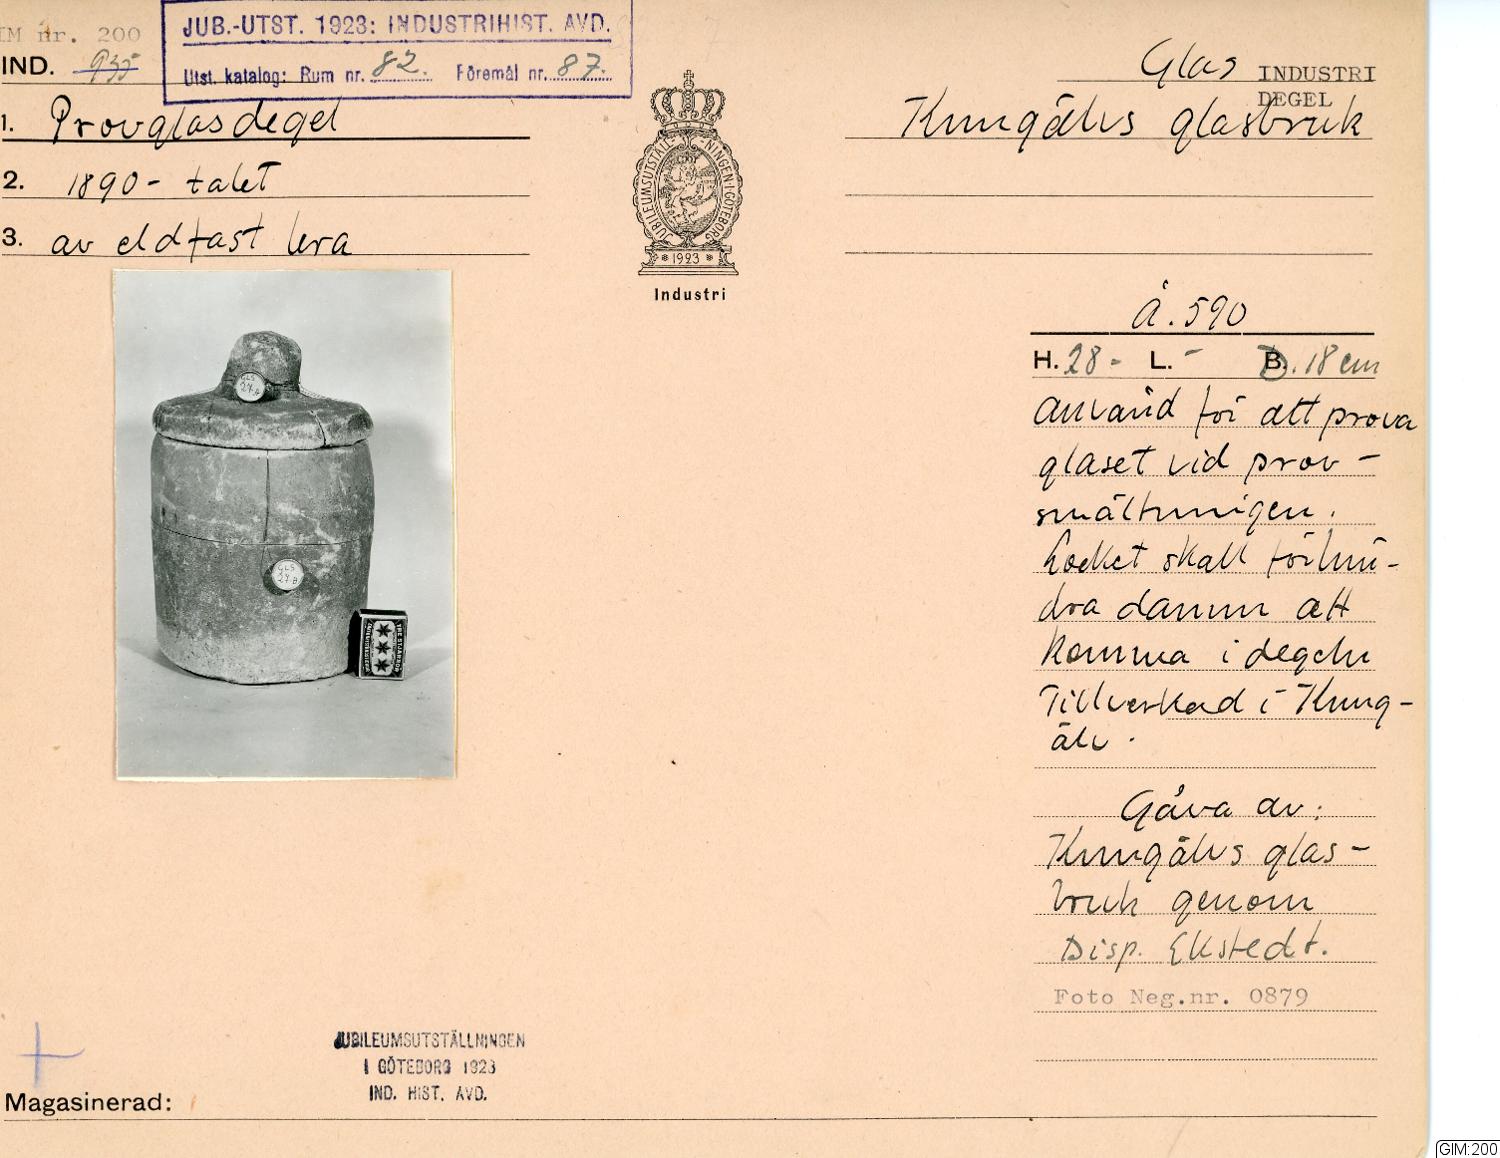 IM nr. 200
IND. 935
JUB.-UTST. 1923: INDUSTRIHIST. AVD.
Utst. katalog: Rum nr. 82. Föremål nr. 87.
1. Provglasdegel
2. 1890-talet
3. av eldfast lera
JUBILEUMSUTSTÄLLNINGEN I GÖTEBORG
1923
Industri
Glas INDUSTRI
DEGEL
Kungälvs glasbruk
Å. 590
H. 28 - L. - B. D. 18 cm
Använd för att prova
glaset vid prov-
smältningen.
Locket skall förhin-
dra damm att
komma i degeln
Tillverkad i Kung-
älv.
Gåva av:
Kungälvs glas-
bruk genom
Disp. Ekstedt.
Foto Neg.nr. 0879
GLS
27.A
GLS
27.B
TRE STJÄRNOR
JUBILEUMSUTSTÄLLNINGEN
I GÖTEBORG 1923
IND. HIST. AVD.
Magasinerad:
GIM:200